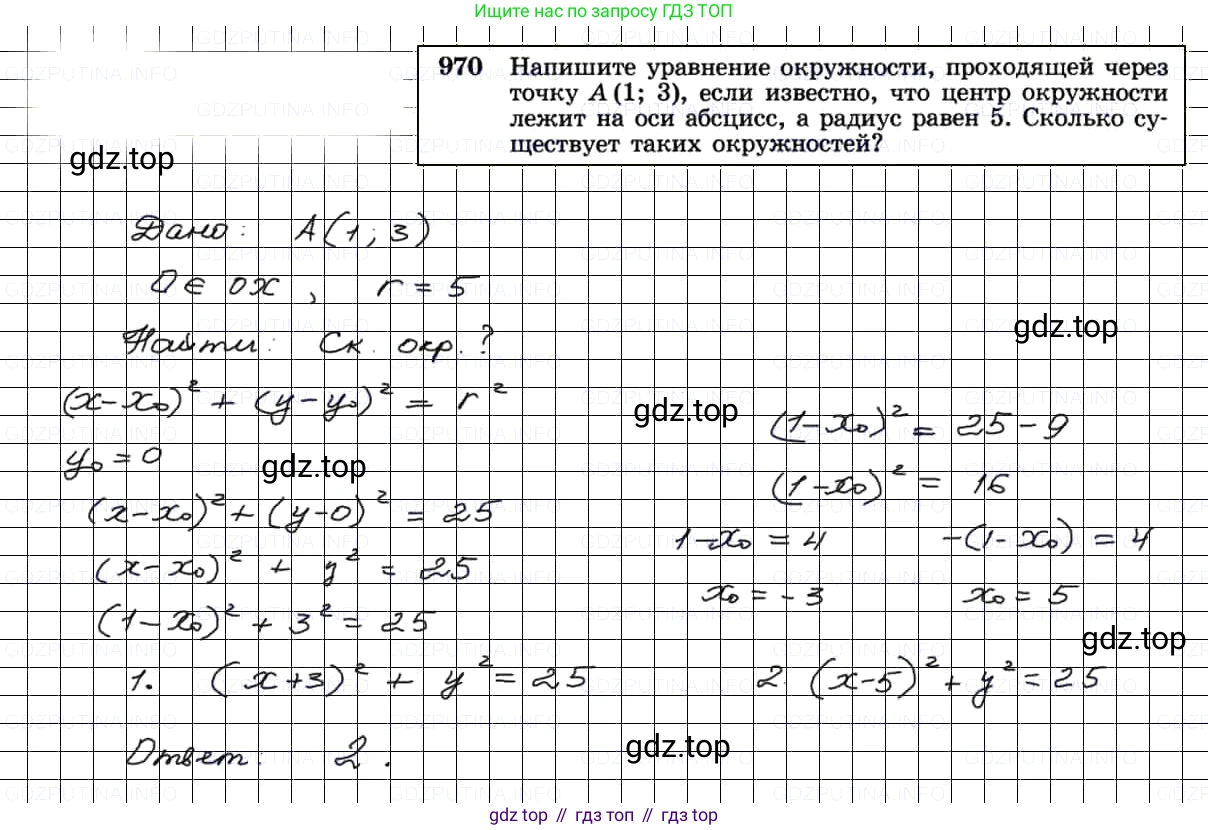 Ищите нас по запросу ГДЗ ТОП
970 Напишите уравнение окружности, проходящей через
точку A (1; 3), если известно, что центр окружности
лежит на оси абсцисс, а радиус равен 5. Сколько су-
ществует таких окружностей?
gdz.top
Дано: A(1; 3)
O ∈ OX, r = 5
gdz.top
Найти: Ск. окр.?
(x-x₀)² + (y-y₀)² = r²
gdz.top
(1-x₀)² = 25-9
y₀ = 0
gdz.top
(1-x₀)² = 16
(x-x₀)² + (y-0)² = 25
1-x₀ = 4 -(1-x₀) = 4
(x-x₀)² + y² = 25
x₀ = -3 x₀ = 5
(1-x₀)² + 3² = 25
gdz.top
1. (x+3)² + y² = 25 2. (x-5)² + y² = 25
Ответ: 2.
gdz.top
gdz top // гдз топ // гдз top
GDZPUTINA.INFO